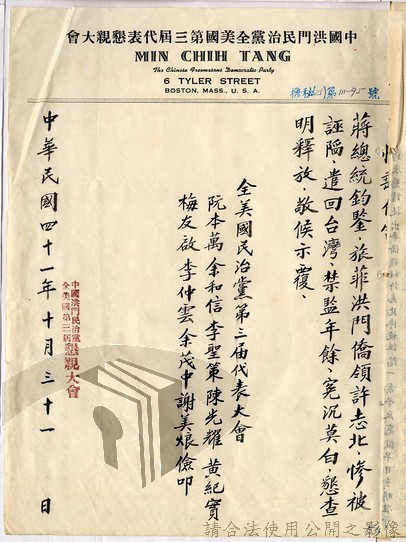 會大親懇表代屆三第國美全黨治民門洪國中
MIN CHIH TANG
The Chinese Freemasons Democratic Party
6 TYLER STREET
BOSTON, MASS., U. S. A.
第111-95號
蔣總統鈞鑒、旅菲洪門僑領許志北、慘被
誣陷、遣回台灣、禁監年餘、冤沉莫白、懇查
明釋放、敬候示覆、
全美國民治黨第三屆代表大會
阮本萬 余和信 李聖策 陳光耀 黃紀實
梅友啟 李仲雲 余茂中 謝美烺 儉叩
中國洪門民治黨
全美國第三屆
懇親大會
中華民國四十一年十月三十一日
請合法使用公開之影像